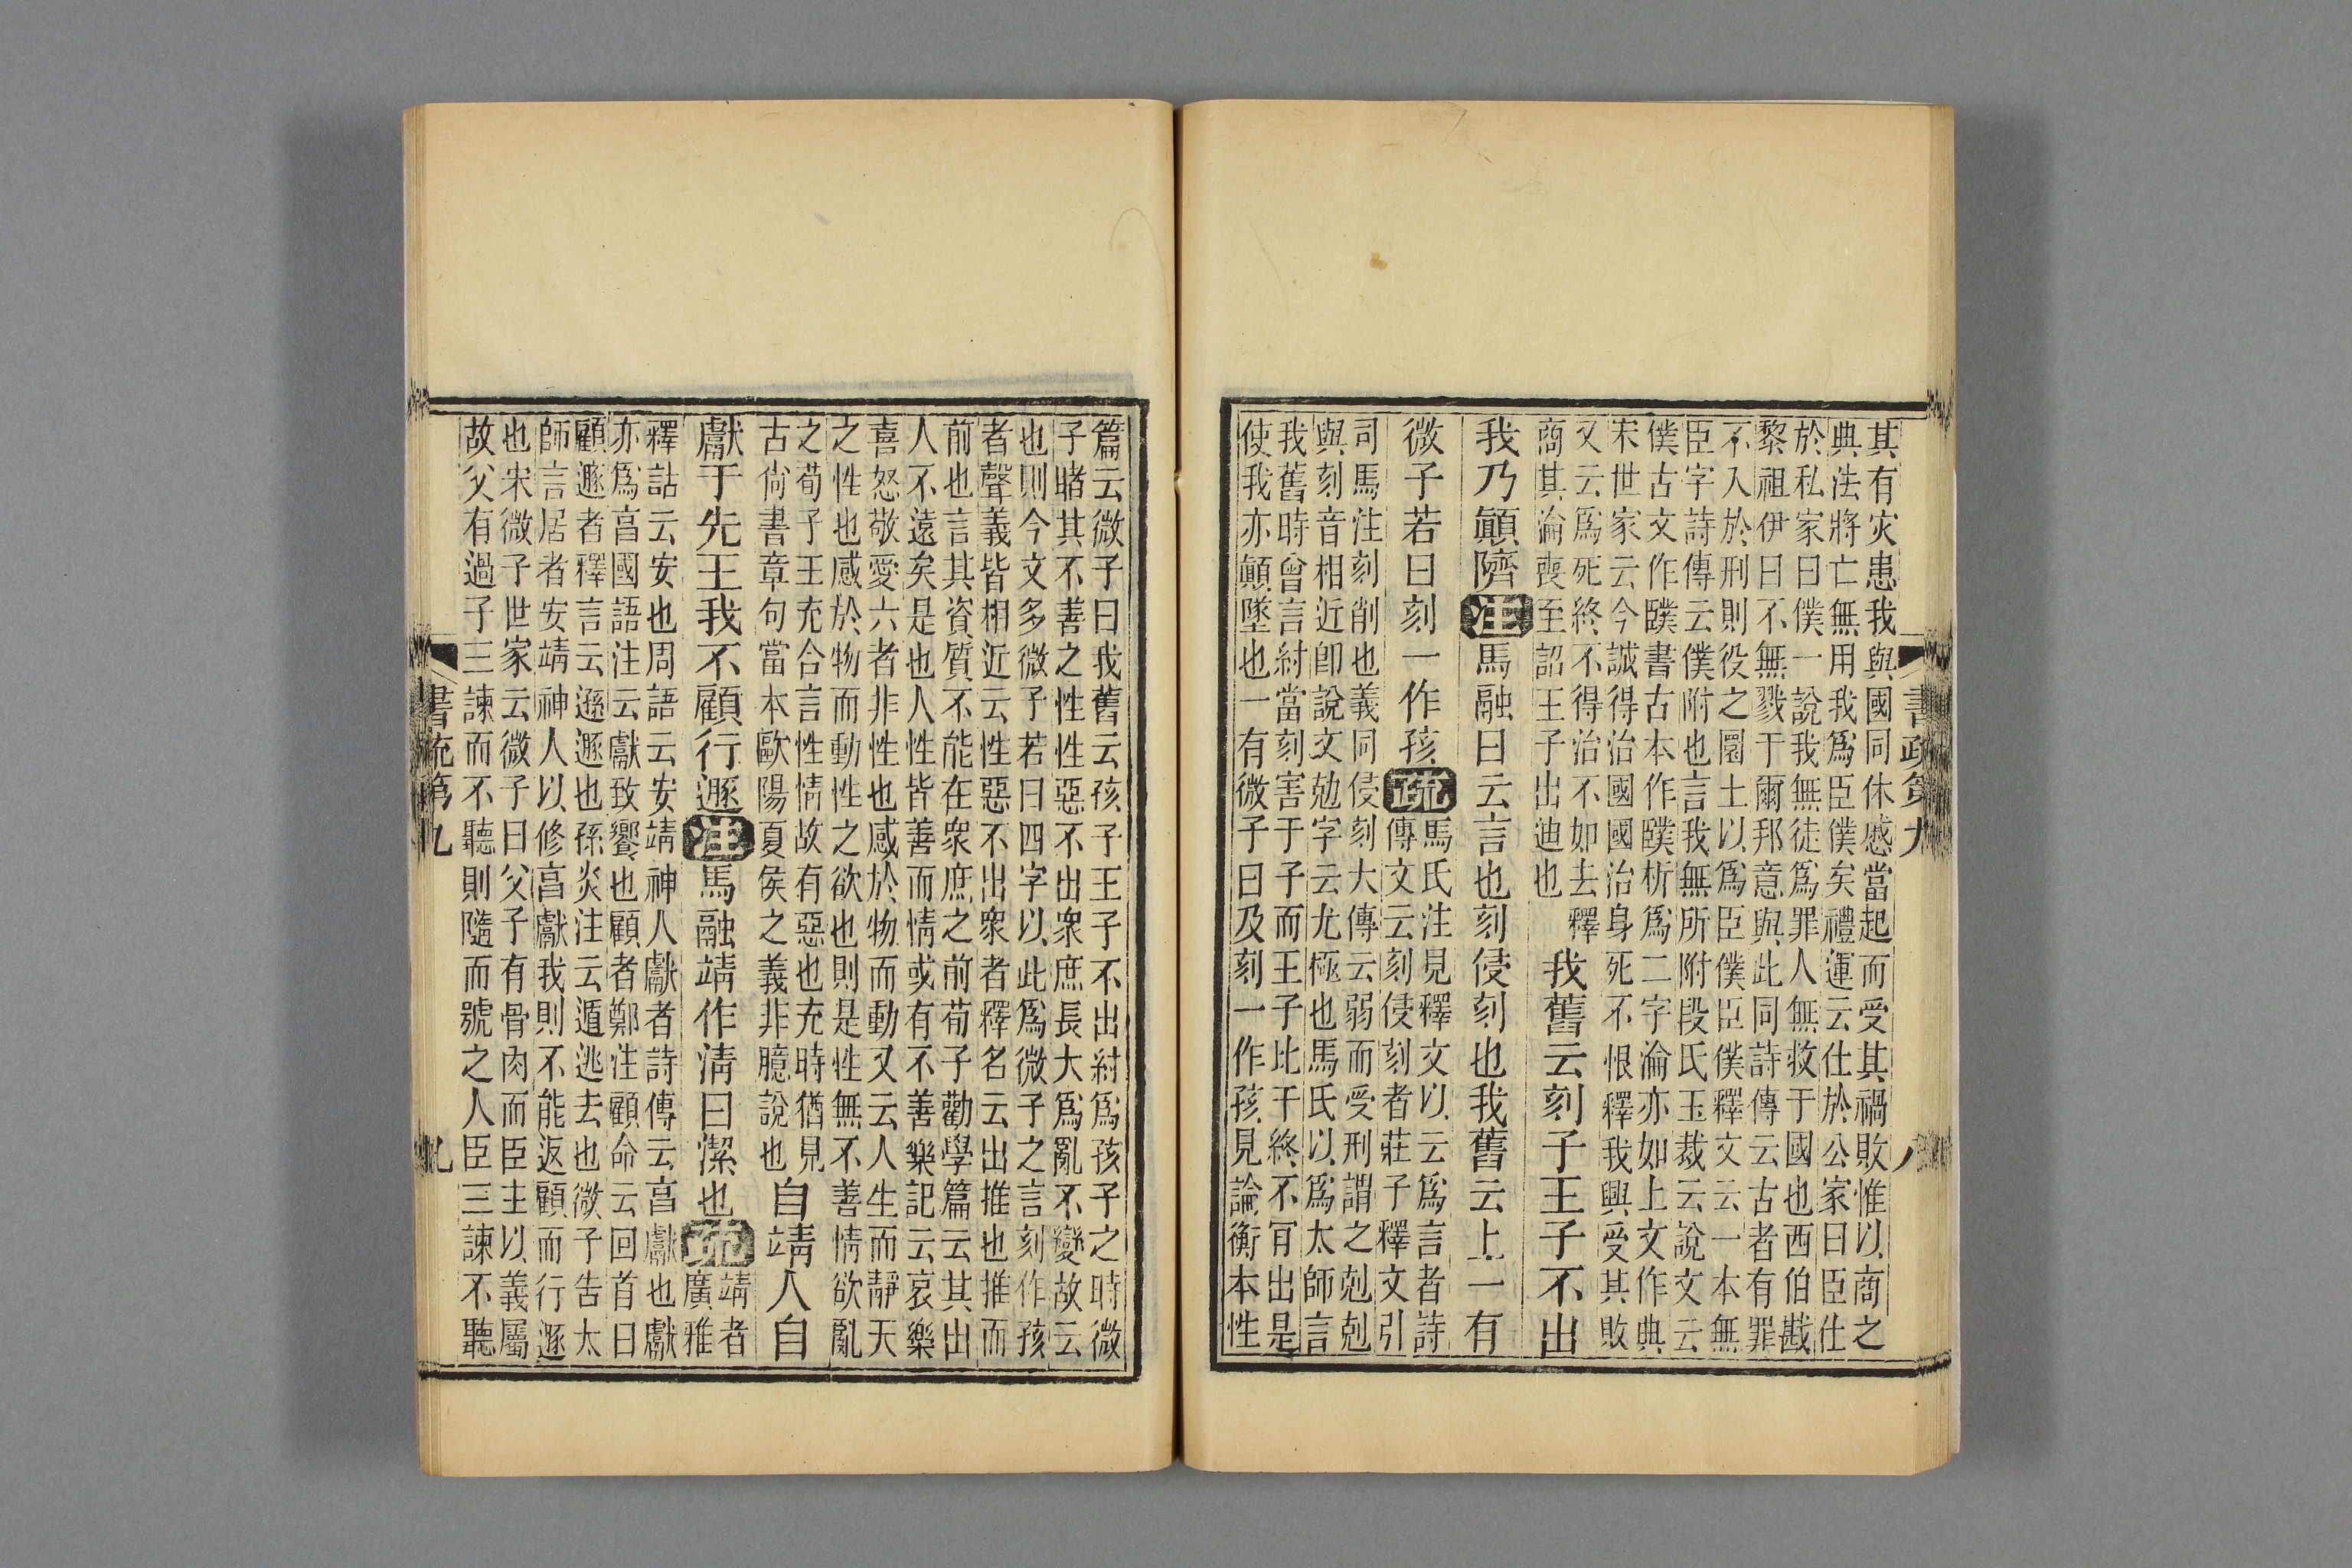 其有灾患我與國同休慼當起而受其禍敗惟以商之
典法將亡無用我爲臣僕矣禮運云仕於公家曰臣仕
於私家曰僕一說我無徒爲罪人無救于國也西伯戡
黎祖伊曰不無戮于爾邦意與此同詩傳云古者有罪
不入於刑則役之圜土以爲臣僕臣僕釋文云一本無
臣字詩傳云僕附也言我無所附段氏玉裁云說文云
僕古文作䑑書古本作䑑析爲二字淪亦如上文作典
宋世家云今誠得治國國治身死不恨釋我興受其敗
又云爲死終不得治不如去釋
商其淪喪至詔王子出迪也
我舊云刻子王子不出
我乃顚隮注馬融曰云言也刻侵刻也我舊云上一有
微子若曰刻一作孩疏
馬氏注見釋文以云爲言者詩
傳文云刻侵刻者莊子釋文引
司馬注刻削也義同侵刻大傳云弱而受刑謂之剋剋
與刻音相近卽說文勊字云尤極也馬氏以爲太師言
我舊時曾言紂當刻害于子而王子比干終不肎出是
使我亦顚墜也一有微子曰及刻一作孩見論衡本性
書疏第九
八
篇云微子曰我舊云孩子王子不出紂爲孩子之時微
子睹其不善之性性惡不出衆庶長大爲亂不變故云
也則今文多微子若曰四字以此爲微子之言刻作孩
者聲義皆相近云性惡不出衆者釋名云出推也推而
前也言其資質不能在衆庶之前荀子勸學篇云其出
人不遠矣是也人性皆善而情或有不善樂記云哀樂
喜怒敬愛六者非性也感於物而動又云人生而靜天
之性也感於物而動性之欲也則是性無不善情欲亂
之荀子王充合言性情故有惡也充時猶見
古尙書章句當本歐陽夏侯之義非臆說也
自靖人自
獻于先王我不顧行遯注馬融靖作淸曰潔也疏
靖者
廣雅
釋詁云安也周語云安靖神人獻者詩傳云亯獻也獻
亦爲亯國語注云獻致饗也顧者鄭注顧命云回首曰
顧遯者釋言云遜遯也孫炎注云遁逃去也微子告太
師言居者安靖神人以修亯獻我則不能返顧而行遯
也宋微子世家云微子曰父子有骨肉而臣主以義屬
故父有過子三諫而不聽則隨而號之人臣三諫不聽
書疏第九
九